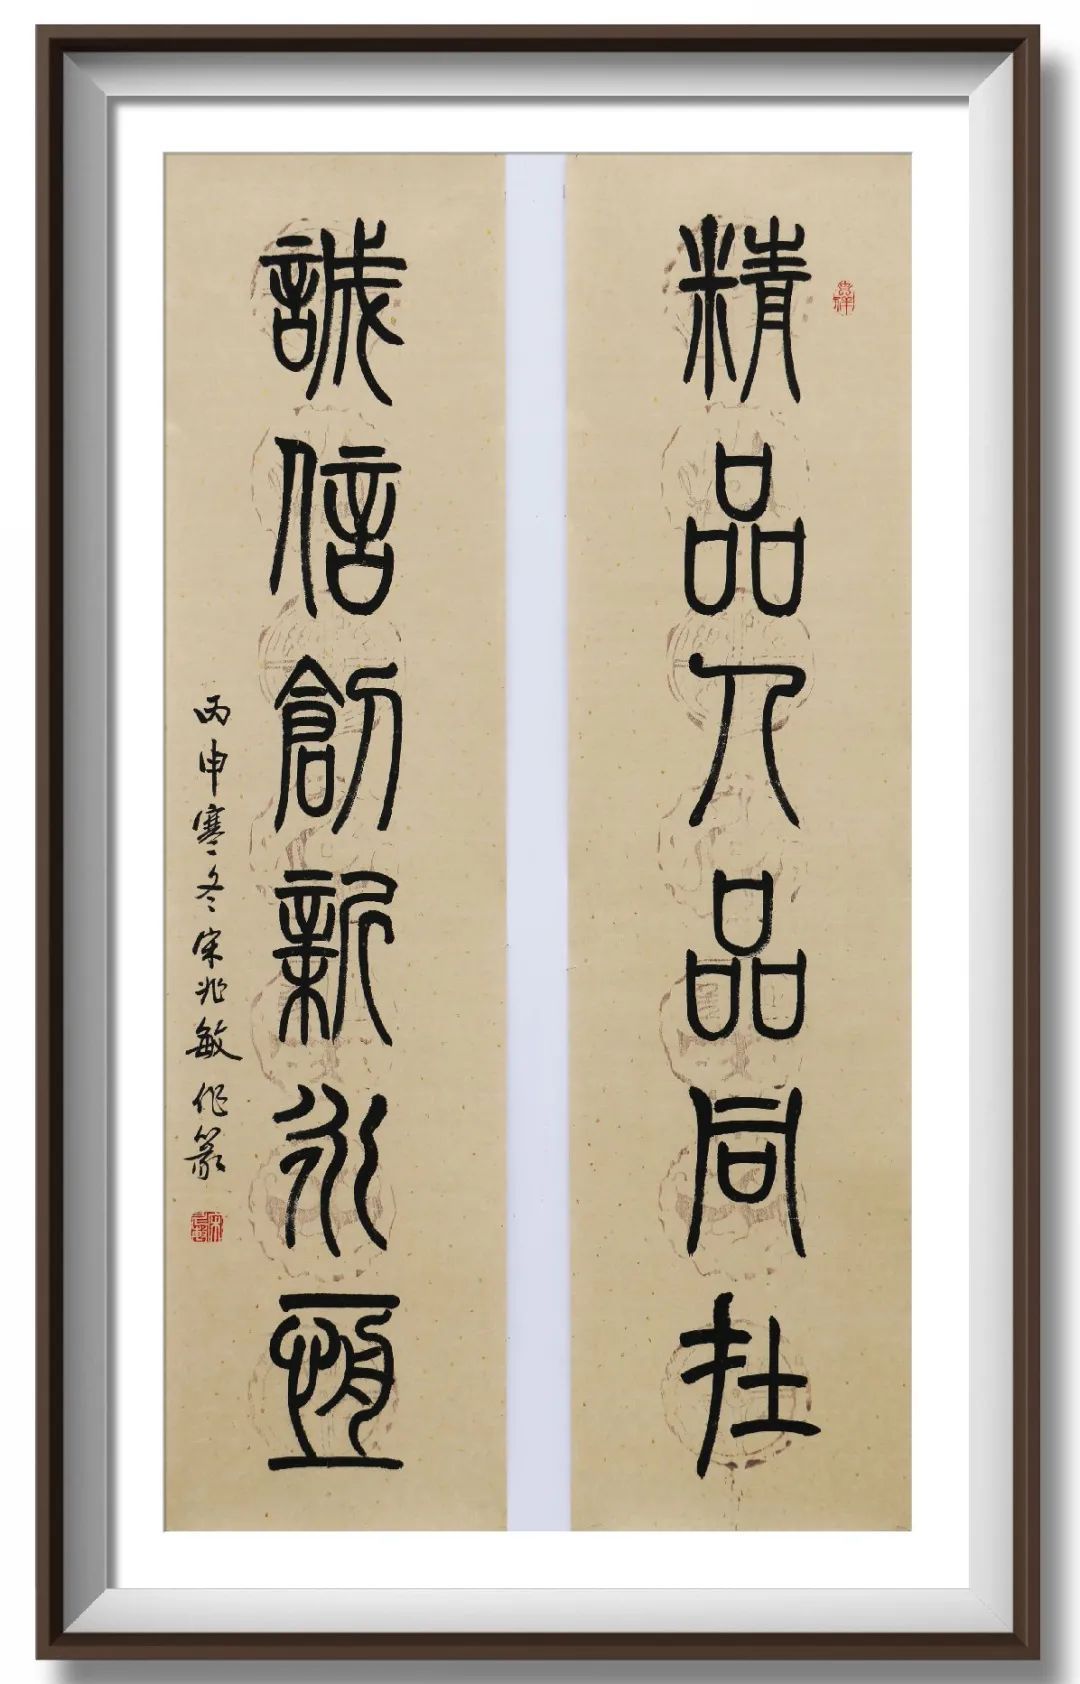 精品人品同在
誠信創新永恆
丙申寒冬宋兆敏作篆